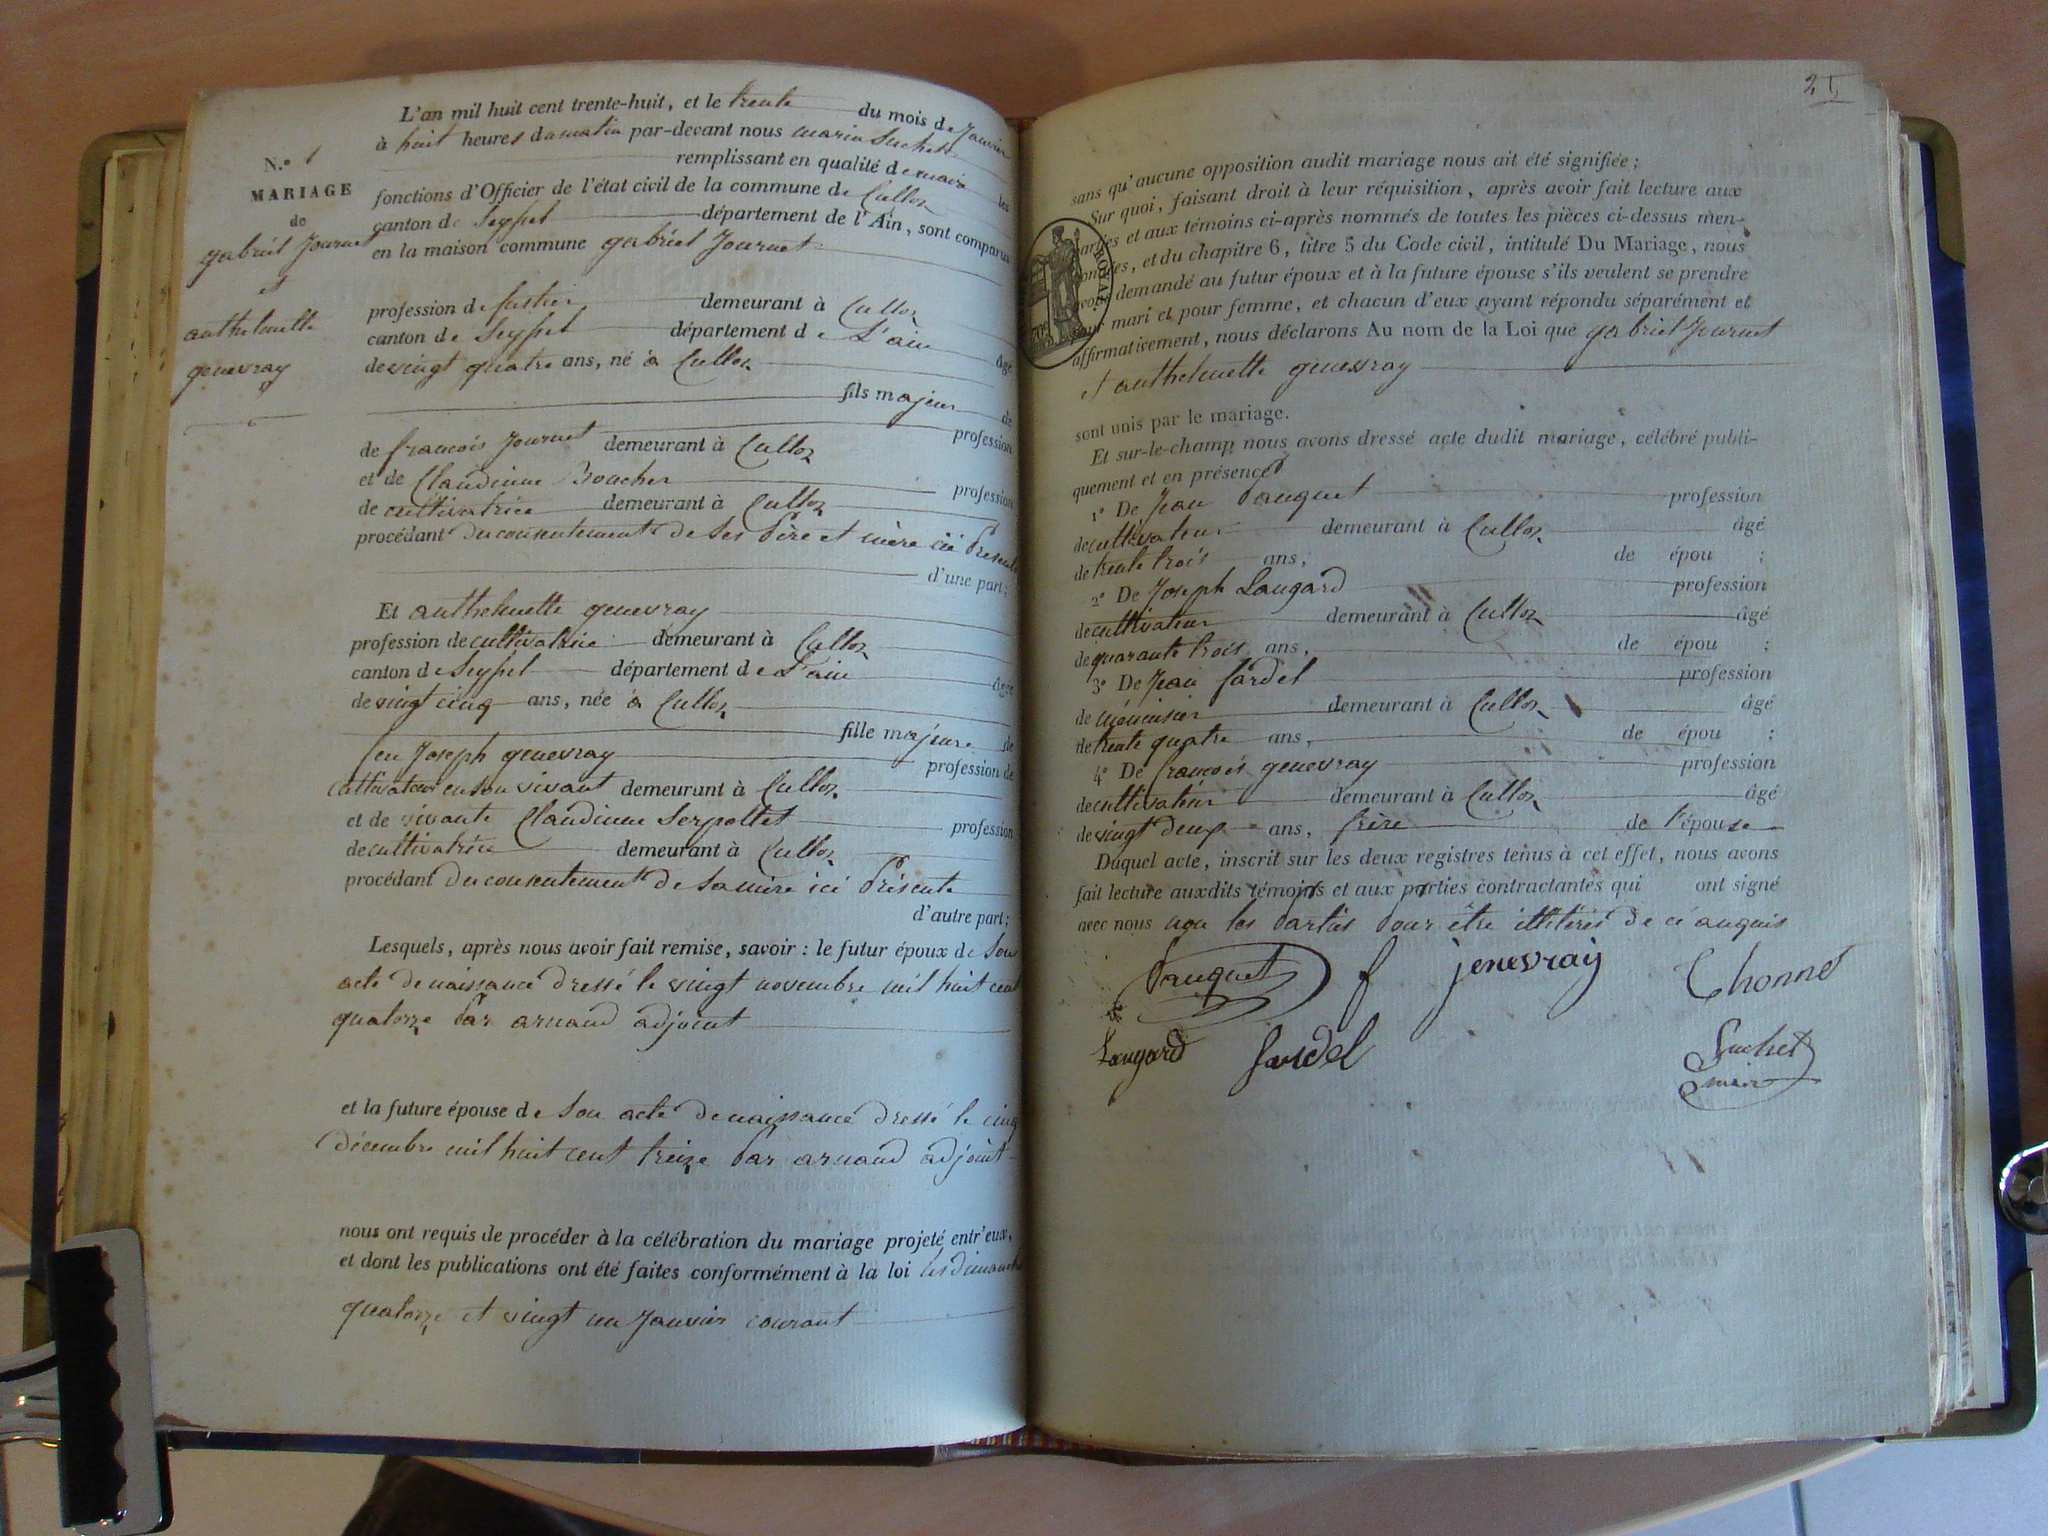 L'an mil huit cent trente-huit, et le trente du mois de janvier
à huit heures du matin par-devant nous marin Suchet
N.º 1
remplissant en qualité de maire les
MARIAGE
fonctions d'Officier de l'état civil de la commune de Culloz
de
canton de Seyssel département de l'Ain, sont comparus
gabriel Journet
en la maison commune gabriel Journet
et
profession de demeurant à Culloz
anthelmette
canton de Seyssel département de L'ain âgé
genevray
de vingt quatre ans, né à Culloz
fils majeur de
de françois Journet demeurant à Culloz profession
et de Claudinne Boucher profession
de cultivatrice demeurant à Culloz
procédant du consentement de ses père et mère ici présents
d'une part;
Et anthelmette genevray
profession de cultivatrice demeurant à Culloz
canton de Seyssel département de L'ain âgée
de vingt cinq ans, née à Culloz
fille majeure de
feu Joseph genevray profession de
cultivateur en son vivant demeurant à Culloz
et de vivante Claudinne Serpollet profession
de cultivatrice demeurant à Culloz
procédant du consentement de sa mère ici présente
d'autre part;
Lesquels, après nous avoir fait remise, savoir: le futur époux de son
acte de naissance dressé le vingt novembre mil huit cent
quatorze par arnaud adjoint
et la future épouse de son acte de naissance dressé le cinq
décembre mil huit cent treize par arnaud adjoint
nous ont requis de procéder à la célébration du mariage projeté entr'eux,
et dont les publications ont été faites conformément à la loi les dimanche
quatorze et vingt un janvier courant
25
sans qu'aucune opposition audit mariage nous ait été signifiée;
Sur quoi, faisant droit à leur réquisition, après avoir fait lecture aux
parties et aux témoins ci-après nommés de toutes les pièces ci-dessus men-
ROYAL
tionnées, et du chapitre 6, titre 5 du Code civil, intitulé Du Mariage, nous
avons demandé au futur époux et à la future épouse s'ils veulent se prendre
pour mari et pour femme, et chacun d'eux ayant répondu séparément et
affirmativement, nous déclarons Au nom de la Loi que gabriel Journet
et anthelmette genevray
sont unis par le mariage.
Et sur-le-champ nous avons dressé acte dudit mariage, célébré publi-
quement et en présence
1º De Jean Pauguet profession
de cultivateur demeurant à Culloz âgé
de trente trois ans, de épou ;
2º De Joseph Laugard profession
de cultivateur demeurant à Culloz âgé
de quarante trois ans, de épou ;
3º De Jean Sardel profession
de menuisier demeurant à Culloz âgé
de trente quatre ans, de épou ;
4º De françois genevray profession
de cultivateur demeurant à Culloz âgé
de vingt deux ans, frère de l'épouse
Duquel acte, inscrit sur les deux registres tenus à cet effet, nous avons
fait lecture auxdits témoins et aux parties contractantes qui ont signé
avec nous non les parties pour être illitérés de ce anquis
Pauguet f jenevray Thonnet
Laugard Sardel Suchet
maire